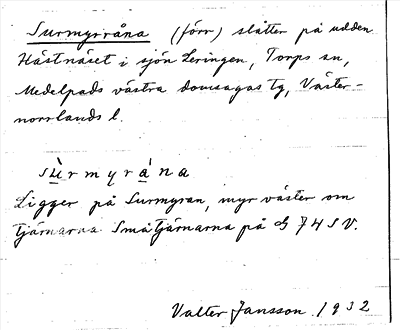 Surmyrråna (förr) slåtter på udden
Hästnäset i sjön Leringen, Torps sn,
Medelpads västra domsagas tg, Väster-
norrlands l.
sùrmyràna
Ligger på Surmyran, myr väster om
tjärnarna Småtjärnarna på G 74 SV.
Valter Jansson 1932